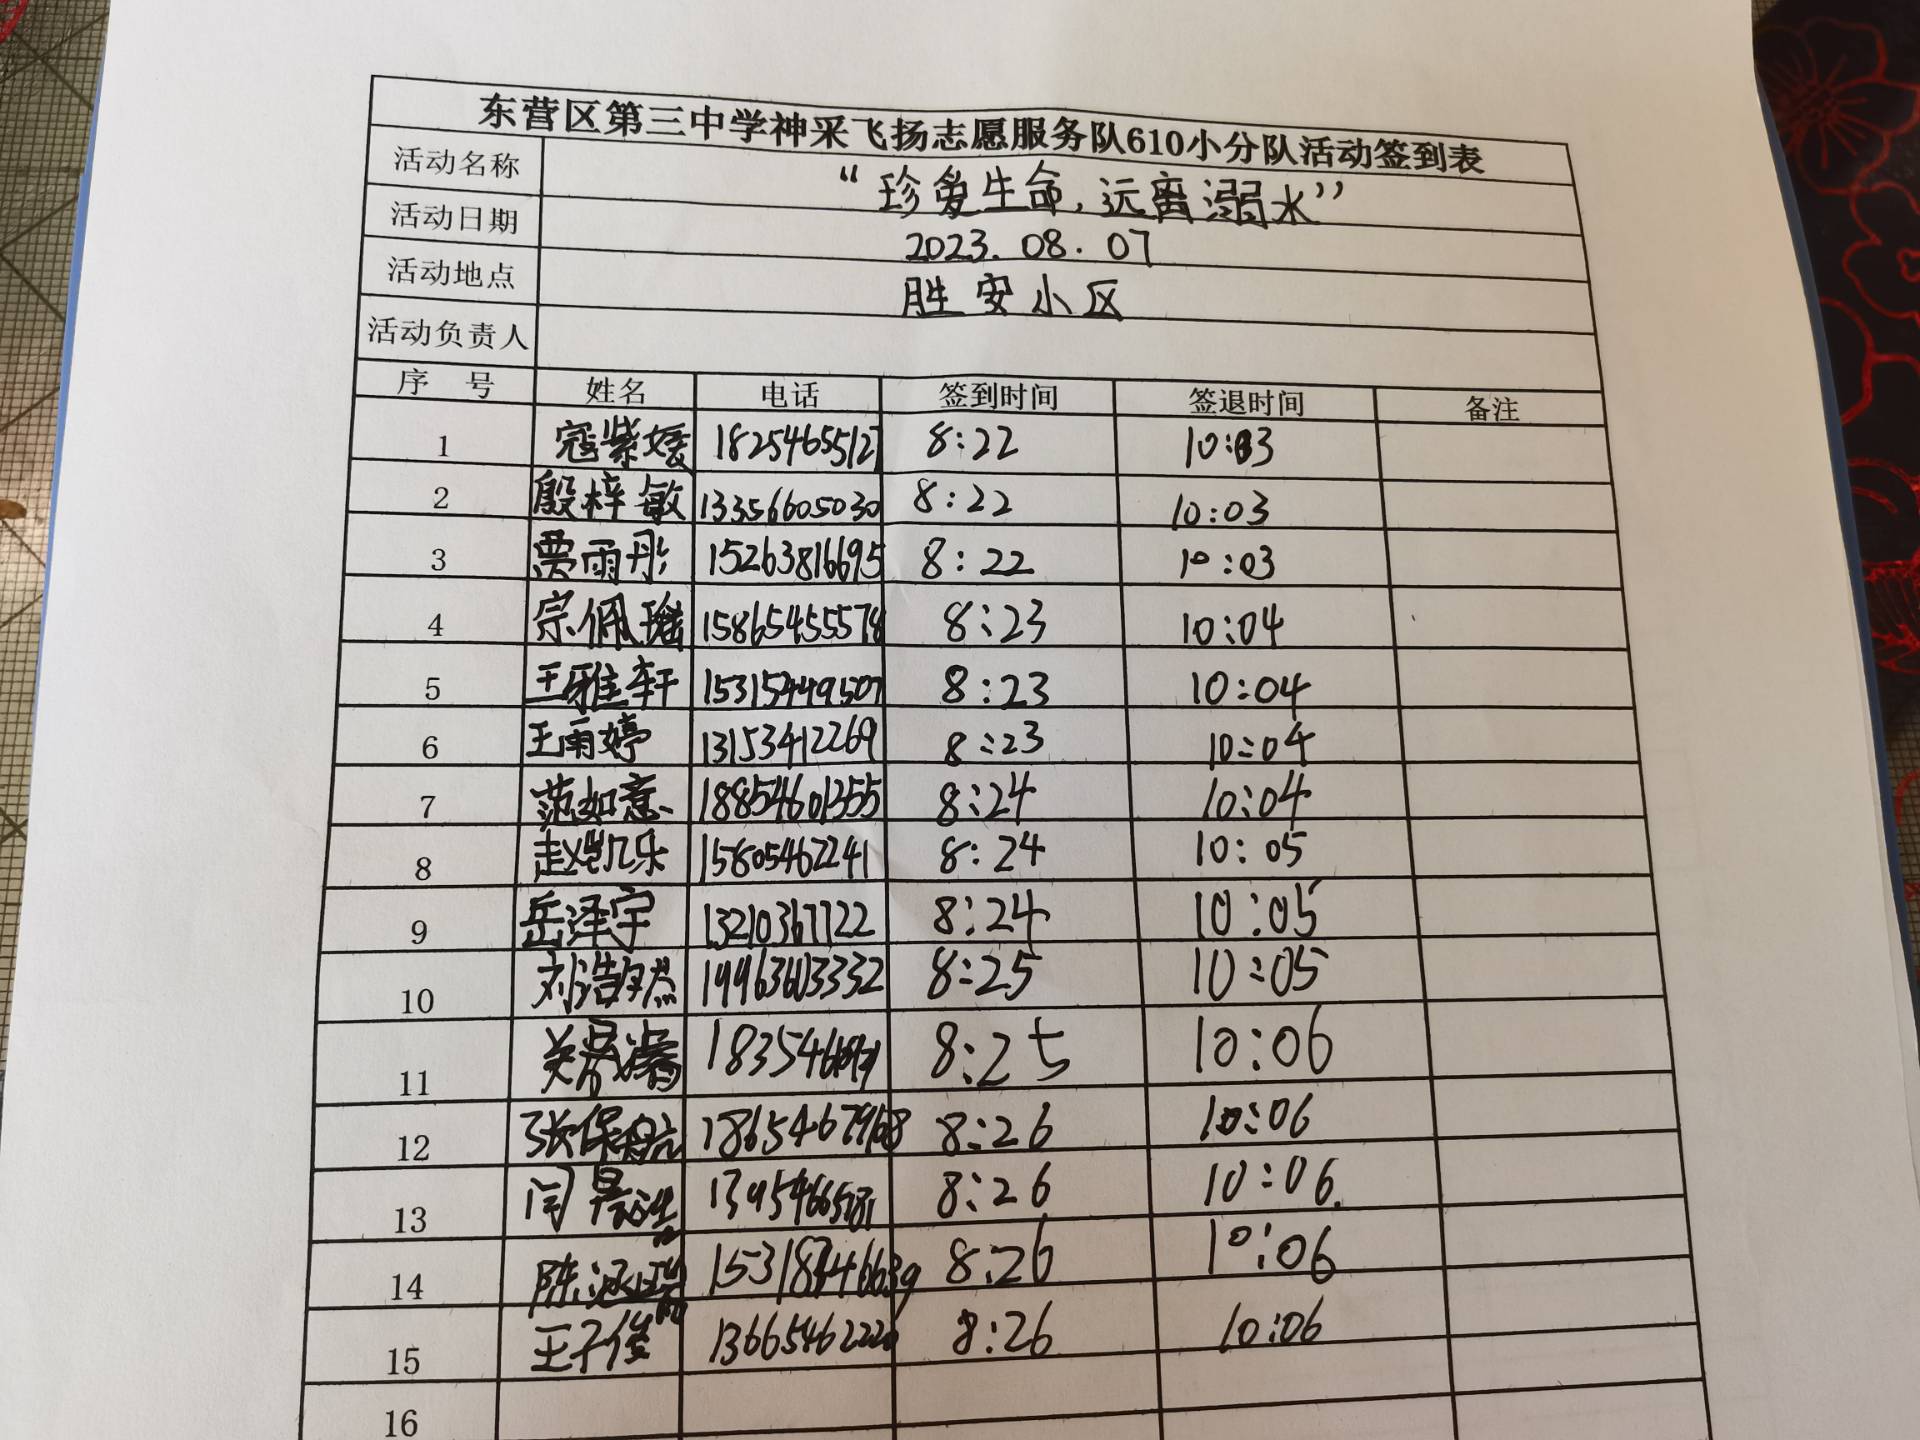 东营区第三中学神采飞扬志愿服务队610小分队活动签到表
活动名称 “珍爱生命,远离溺水”
活动日期 2023.08.07
活动地点 胜安小区
活动负责人
序 号 姓名 电话 签到时间 签退时间 备注
1 寇紫媛 18254655127 8:22 10:03
2 殷梓敏 13356605030 8:22 10:03
3 贾雨彤 15263816695 8:22 10:03
4 宗佩瑶 15865455578 8:23 10:04
5 王雅轩 15315449507 8:23 10:04
6 王雨婷 13153412269 8:23 10:04
7 范如意 18854601355 8:24 10:04
8 赵凯乐 15805462241 8:24 10:05
9 岳泽宇 13210367122 8:24 10:05
10 刘浩然 19963603332 8:25 10:05
11 8:25 10:06
12 张保航 18654679168 8:26 10:06
13 闫昊浩 8:26 10:06
14 陈涵瑞 8:26 10:06
15 王子俊 13665462220 8:26 10:06
16